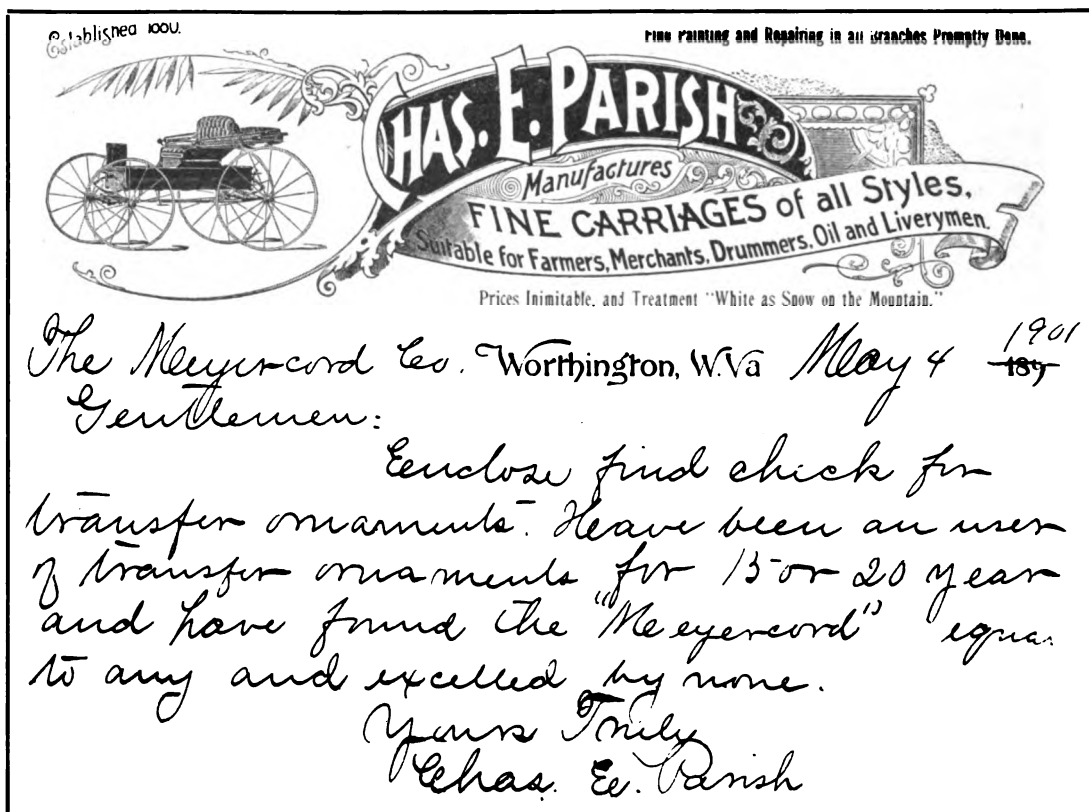 Established
Fine Painting and Repairing in all Branches Promptly Done.
CHAS. E. PARISH
Manufactures
FINE CARRIAGES of all Styles,
Suitable for Farmers, Merchants, Drummers, Oil and Liverymen.
Prices Inimitable, and Treatment "White as Snow on the Mountain."
1901
The Meyercord Co. Worthington, W.Va May 4 189
Gentlemen:
Enclose find check for
transfer ornaments. Have been an user
of transfer ornaments for 15 or 20 year
and have found the "Meyercord" equa
to any and excelled by none.
Yours Truly
Chas. E. Parish